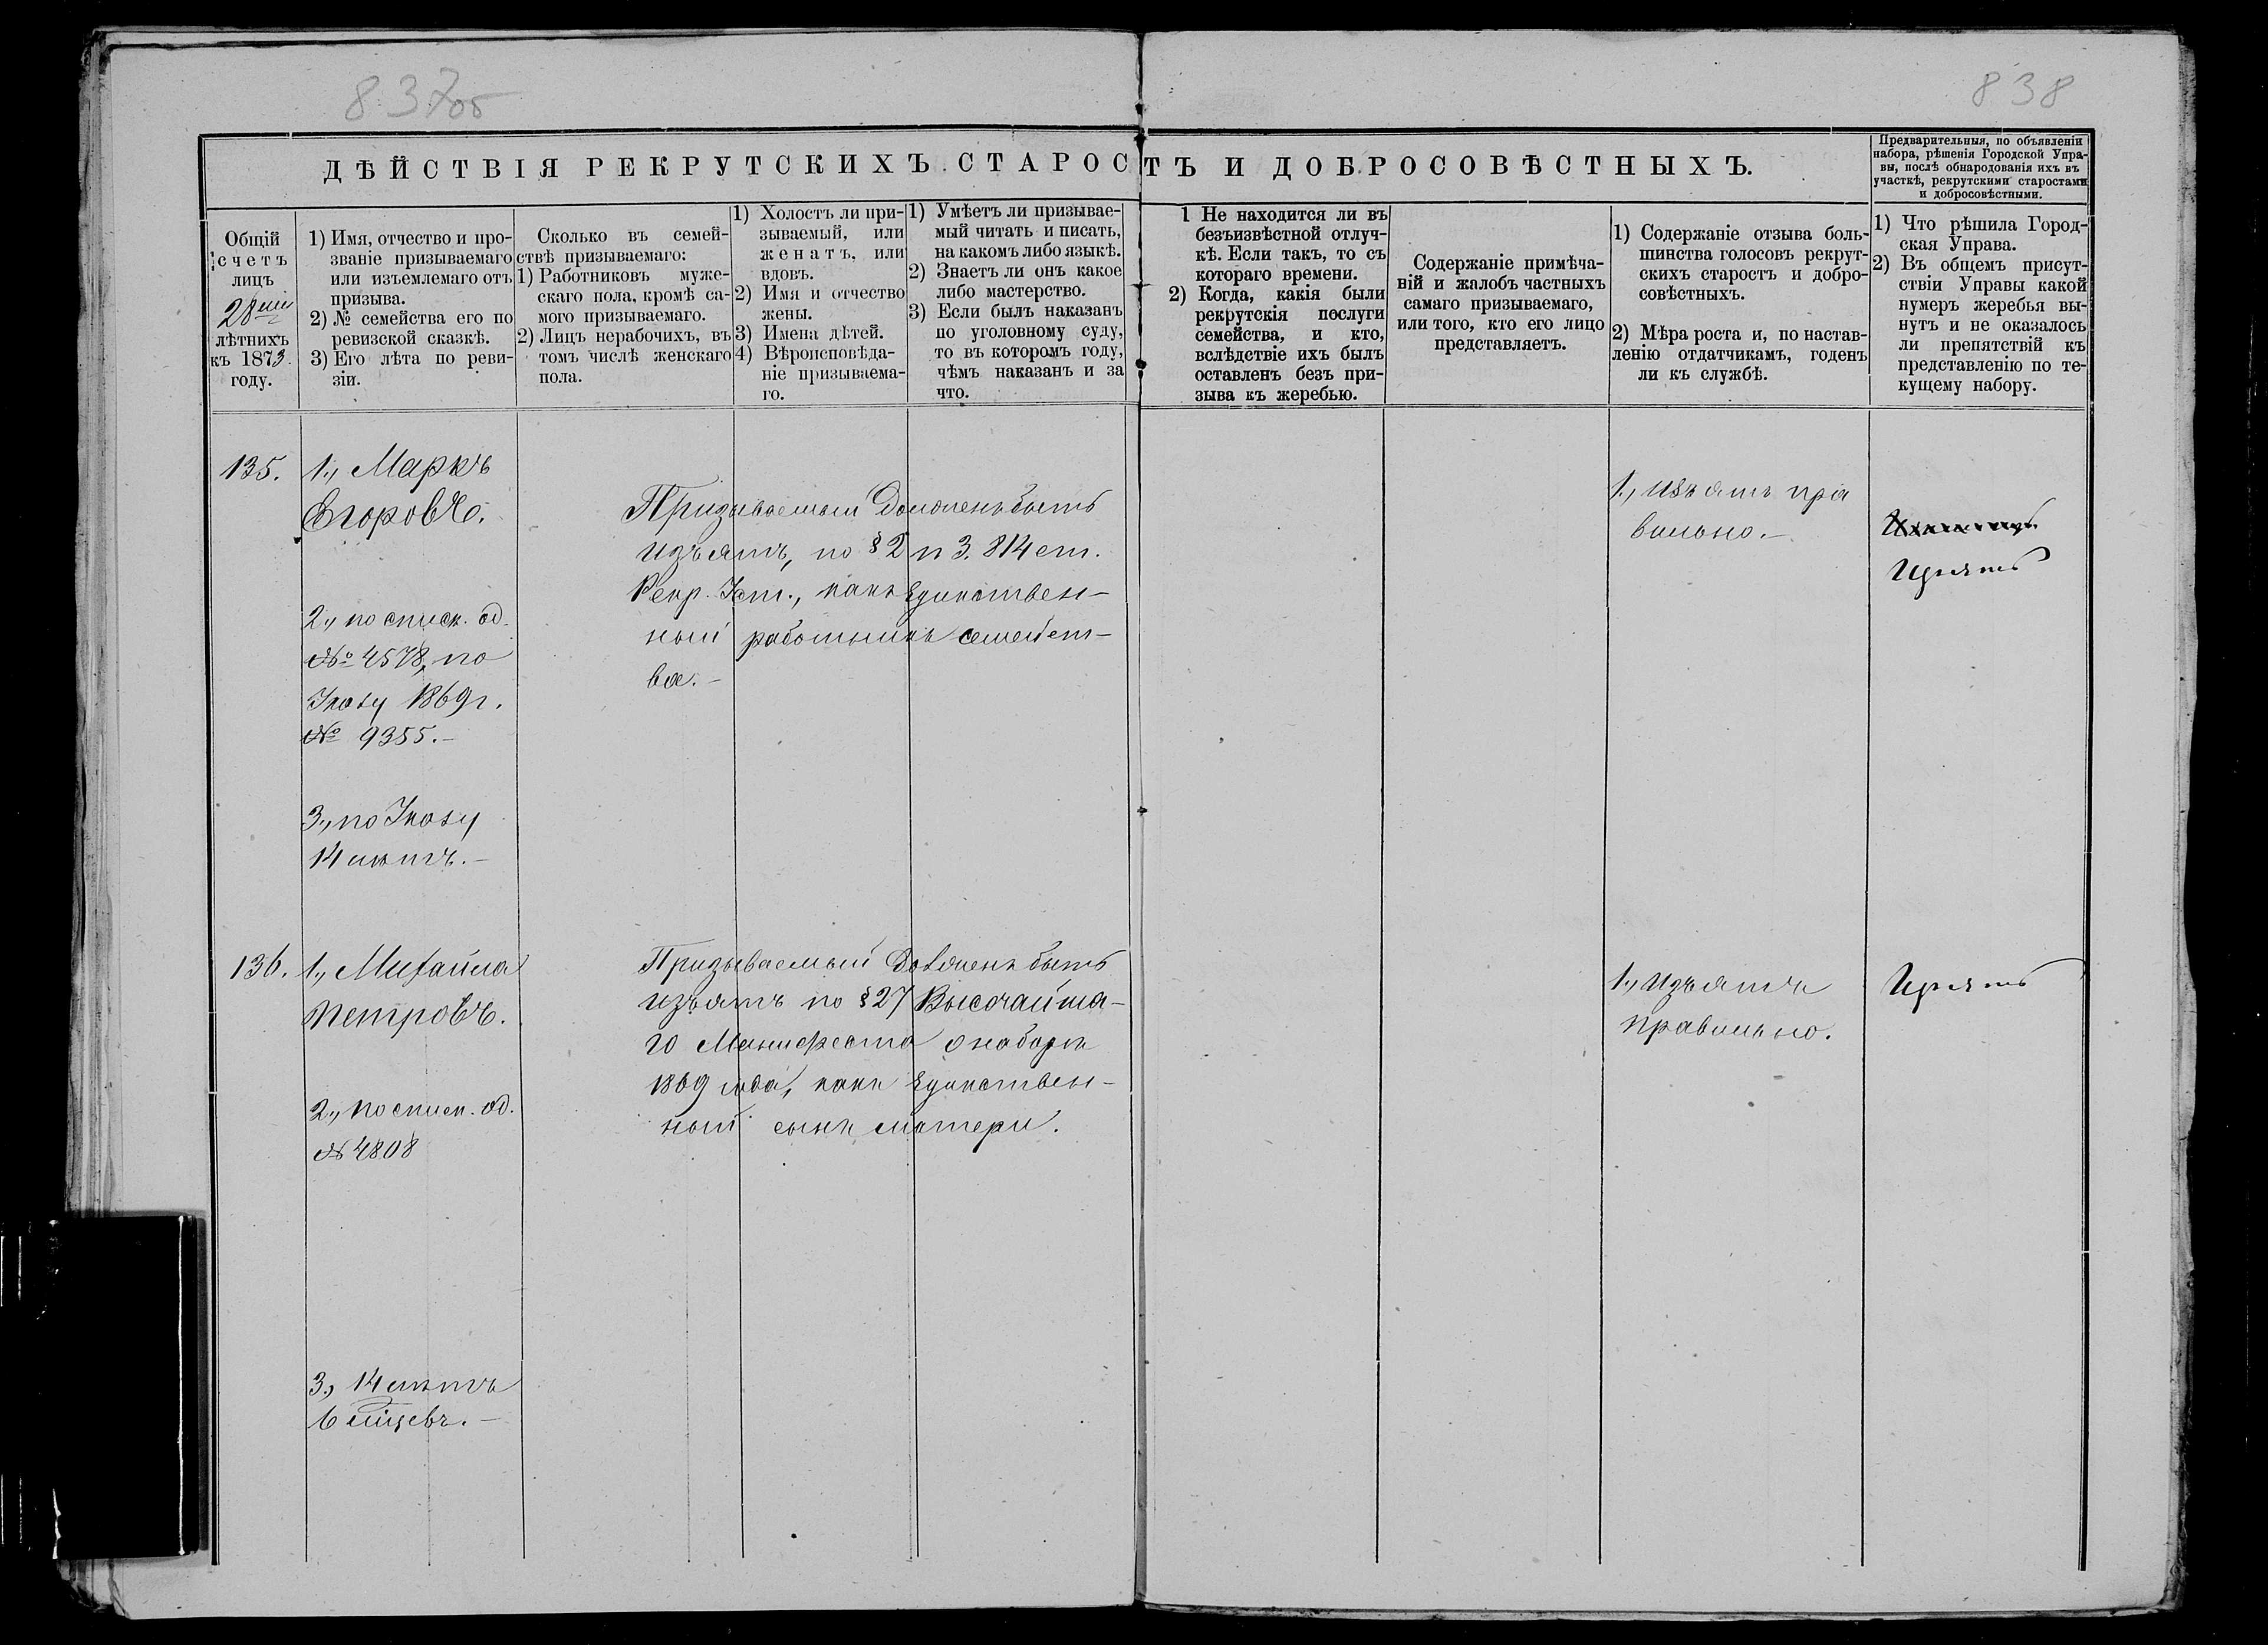 837об
838
ДѢЙСТВІЯ РЕКРУТСКИХЪ СТАРОСТЪ И ДОБРОСОВѢСТНЫХЪ.
Предварительныя, по объявленіи
набора, рѣшенія Городской Упра-
вы, послѣ обнародованія ихъ въ
участкѣ, рекрутскими старостами
и добросовѣстными.
Общій
счетъ
лицъ
28ми
лѣтнихъ
къ 1873
году.
1) Имя, отчество и про-
званіе призываемаго
или изъемлемаго отъ
призыва.
2) № семейства его по
ревизской сказкѣ.
3) Его лѣта по реви-
зіи.
Сколько въ семей-
ствѣ призываемаго:
1) Работниковъ муже-
скаго пола, кромѣ са-
мого призываемаго.
2) Лицъ нерабочихъ, въ
томъ числѣ женскаго
пола.
1) Холостъ ли при-
зываемый, или
женатъ, или
вдовъ.
2) Имя и отчество
жены.
3) Имена дѣтей.
4) Вѣроисповѣда-
ніе призываема-
го.
1) Умѣетъ ли призывае-
мый читать и писать,
на какомъ либо языкѣ.
2) Знаетъ ли онъ какое
либо мастерство.
3) Если былъ наказанъ
по уголовному суду,
то въ которомъ году,
чѣмъ наказанъ и за
что.
1 Не находится ли въ
безъизвѣстной отлуч-
кѣ. Если такъ, то съ
котораго времени.
2) Когда, какія были
рекрутскія послуги
семейства, и кто,
вслѣдствіе ихъ былъ
оставленъ безъ при-
зыва къ жеребью.
Содержаніе примѣча-
ній и жалобъ частныхъ
самаго призываемаго,
или того, кто его лицо
представляетъ.
1) Содержаніе отзыва боль-
шинства голосовъ рекрут-
скихъ старостъ и добро-
совѣстныхъ.
2) Мѣра роста и, по настав-
ленію отдатчикамъ, годенъ
ли къ службѣ.
1) Что рѣшила Город-
ская Управа.
2) Въ общемъ присут-
ствіи Управы какой
нумеръ жеребья вы-
нутъ и не оказалось
ли препятствій къ
представленію по те-
кущему набору.
135.
1., Маркъ
Егоровъ.
2., по списк. од.
№ 4578, по
Указу 1869 г.
№ 9355.-
3., по Указу
14 лѣтъ.-
Призываемый долженъ быть
изъятъ, по § 2 п 3. 814 ст.
Рекр. Уст., какъ единствен-
ный работникъ семейст-
ва.-
1., Изъятъ пра
вильно.-
Изъять
136.
1., Михайла
Петровъ.
2., по списк. од.
№ 4808
3., 14 лѣтъ
6 мѣсцевъ.-
Призываемый долженъ быть
изъятъ по § 27 Высочайша-
го Манифеста о наборѣ
1869 года, какъ единствен-
ный сынъ матери.
1., Изъятъ
правильно.
Изъять